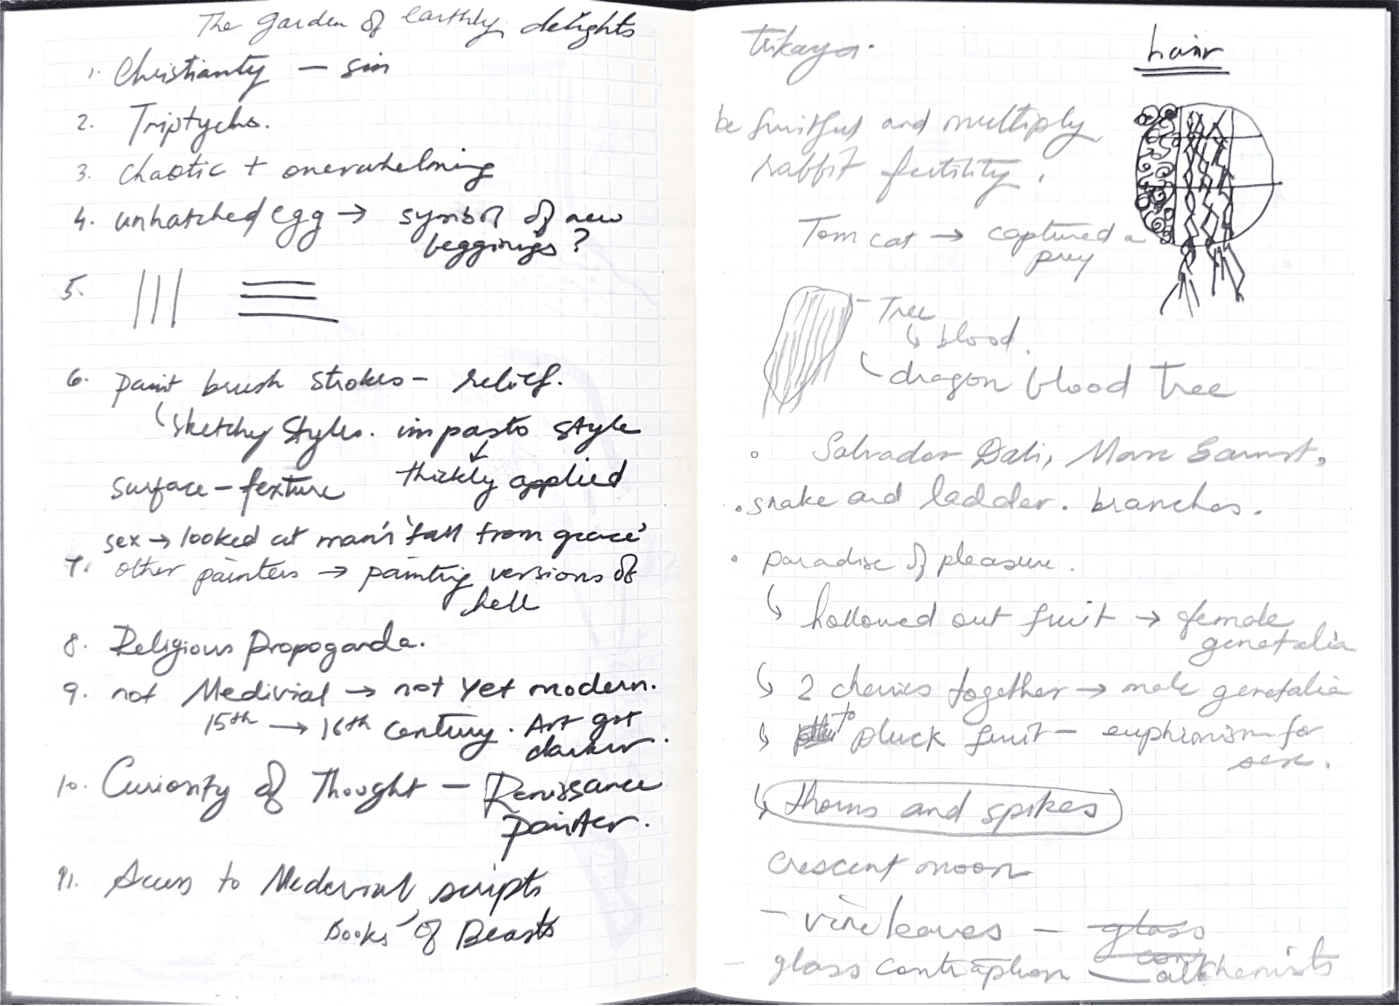 The garden of earthly delights
1. Christianty — sin
2. Triptychs.
3. Chaotic + overwhelming
4. unhatched egg → symbol of new
beggnings?
5.
6. paint brush strokes – relief.
sketchy styles. impasto style
thickly applied
surface – texture
sex → looked at man's 'fall from grace'
7. other painters → painting versions of
hell
8. Religious Propoganda.
9. not Medivial → not yet modern.
15th → 16th century. Art got
darker.
10. Curiosity of Thought – Renissance
painter.
11. Access to Medevial scripts
Books of Beasts
hair
be fruitful and multiply
rabbit fertility.
Tom cat → captured a
prey
Tree
↳ blood.
dragon blood Tree
Salvador Dali, Marc
snake and ladder. branches.
paradise of pleasure.
↳ hollowed out fruit → female
genetalia
↳ 2 cherries together → male genetalia
↳ to pluck fruit – euphimism for
sex.
↳ thorns and spikes
Crescent moon
– vine leaves – glass
– glass contraption – alchemists